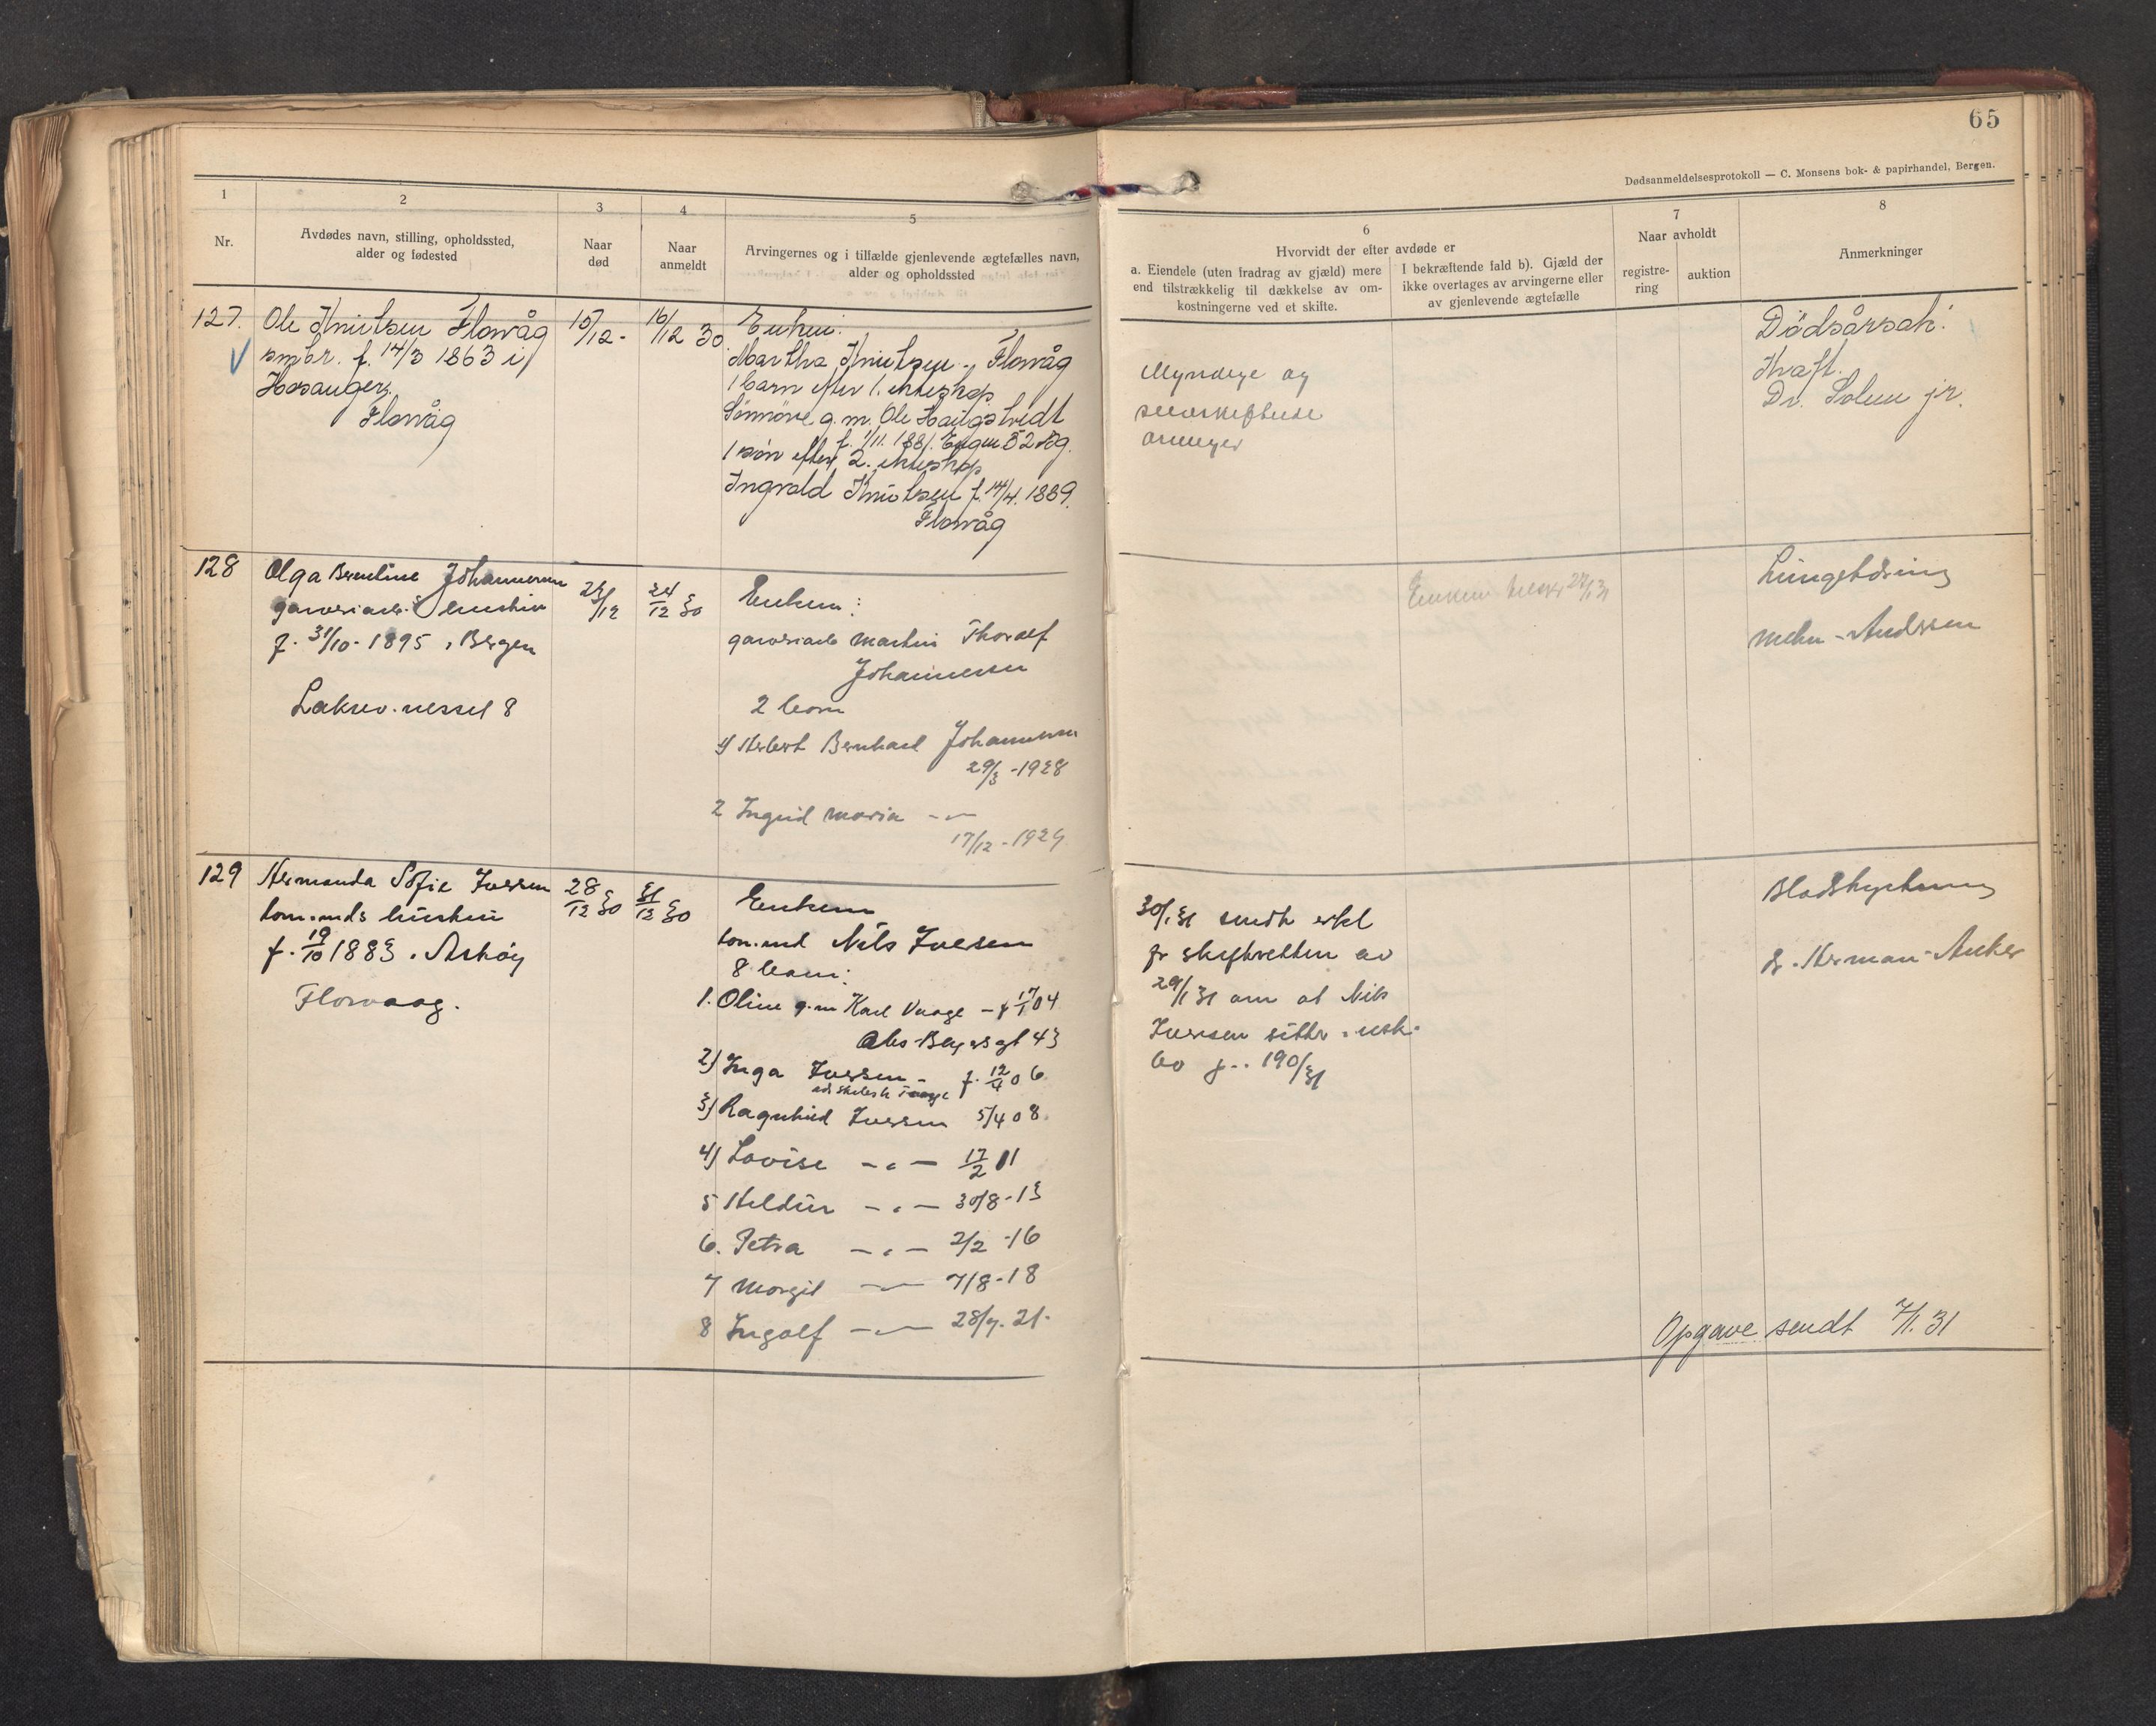 65
Dødsanmeldelsesprotokoll — C. Monsens bok- & papirhandel, Bergen.
1
Nr.
2
Avdødes navn, stilling, opholdssted,
alder og fødested
3
Naar
død
4
Naar
anmeldt
5
Arvingernes og i tilfælde gjenlevende ægtefælles navn,
alder og opholdssted
6
Hvorvidt der efter avdøde er
a. Eiendele (uten fradrag av gjæld) mere
end tilstrækkelig til dækkelse av om-
kostningerne ved et skifte.
I bekræftende fald b). Gjæld der
ikke overtages av arvingerne eller
av gjenlevende ægtefælle
7
Naar avholdt
registre-
ring
auktion
8
Anmerkninger
127.
Ole Knutsen Florvåg
smbr. f. 14/3 1863 i
Hosanger
Florvåg
15/12 -
16/12 30
Enken:
Martha Knutsen, Florvåg
1 barn efter 1. ekteskap
Sönnöve g.m. Ole Haugstvedt
f. 1/11. 1881. Engen 52 Bg.
1 sön efter 2. ekteskap
Ingvald Knutsen f. 14/4. 1889.
Florvåg
Myndige og
selvskiftende
arvinger
Dödsårsak:
Kraft.
Dr. Solem jr.
128
Olga Berntine Johannessen
garveriarb.s hustru
f. 31/10 - 1895, Bergen
Laksev. nessel 8
23/12
24/12 30
Enkem:
garveriarb Martin Thoralf
Johannessen
2 barn
1) Herbert Bernhard Johannessen
29/3 - 1928
2 Ingrid Maria - " -
17/12 - 1929
Enkem 27/1 31
Lungebetdring
Mehn-Andersen
129
Hermanda Sofie Iversen
tom.mds hustru
f. 19/10 1883. Askøy
Florvaag.
28/12 30
31/12 30
Enkem
tom.md Nils Iversen
8 barn:
1. Oline g.m Karl Vaage - f 17/1 04
Abs-Beyersgt 43
2) Inga Iversen - f. 12/4 06
3) Ragnhild Iversen 5/4 08
4) Lovise - " - 17/2 11
5 Heldur - " - 30/8 - 13
6. Petra - " - 2/2 - 16
7 Margit - " - 7/8 - 18
8 Ingolf - " - 28/7. 21.
30/1 31 sendt erkl
fr skifteretten av
29/1 31 om at Nils
Iversen sitter i usk.
bo j.. 190/31
Blodstyrtning
Dr. Herman-Anker
Opgave sendt 7/1. 31